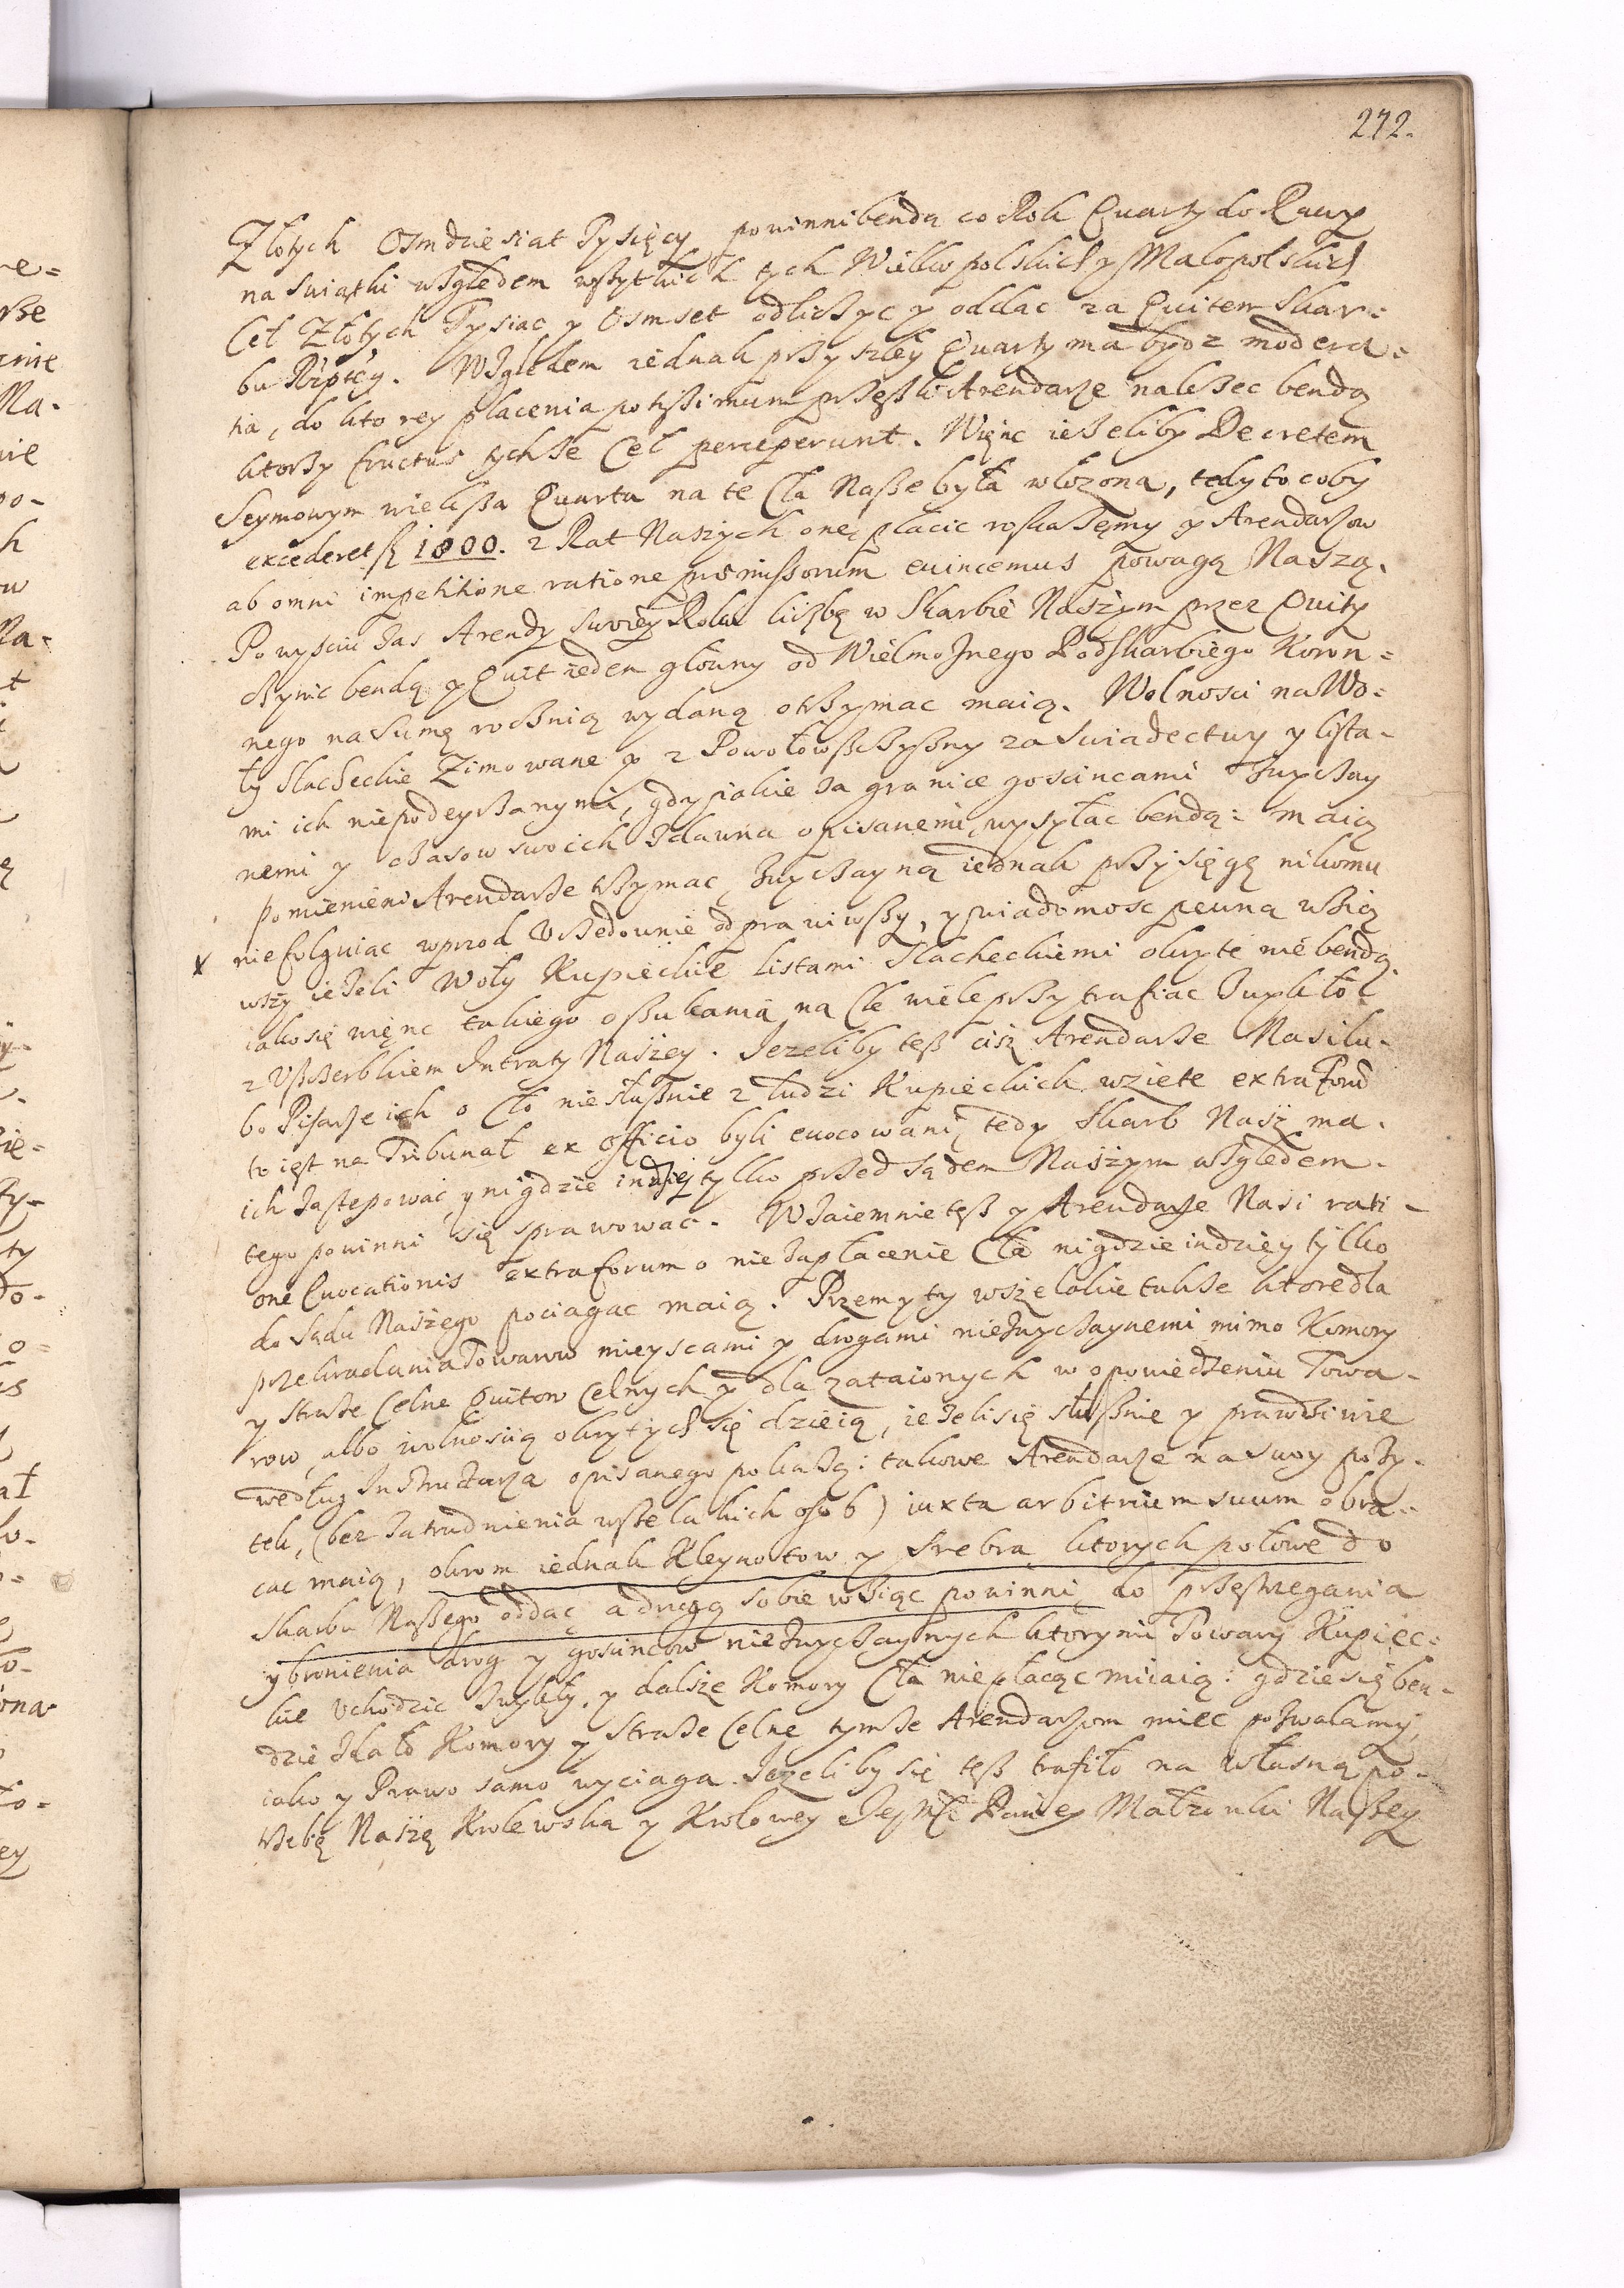 272.
Złotych Osmdziesiat Tysięcy powinni bendą co Rok Quarty do Rawy
na Swiątki wzgledem wszytkich tych Wielkopolskich y Małopolskich
Ceł Złotych Tysiac y Osmset odliczyc y oddac za Quitem Skar=
bu Rzptey. Wzgledem iednak przyszłey Quarty ma bydz modera=
tia, do ktorey płacenia potissimum przeszli Arendarze nalezec bendą
ktorzy fructus tychze Ceł perceperunt. Więnc iezeliby Decretem
Seymowym wieksza Quarta na te Cła Nasze była włozona, tedy to coby
excederet fl 1800. z Rat Naszych onę płacic roskazemy y Arendarzow
ab omni impetitione ratione præmissorum euincemus powagą Naszą.
Po wysciu zas Arendy swoiey Roku liczbę w Skarbie Naszym przez Quity
czynic bendą y Quit ieden głowny od Wielmoznego Podskarbiego Koron=
nego na Sumę rocznią wydaną otrzymac maią. Wolnosci na Wo=
ły Slacheckie Zimowane y z Powołowszczyzny za Swiadectwy y lista-
mi ich niepodeyrzanymi, gdy iakie za granice goscincami zwyczay
nemi y czasow swoich zdawna opisanemi wysyłac bendą: maią
pomienieni Arendarze trzymac, zwyczayną iednak przysięgę nikomu
x niefolguiac wprzod Urzedownie odprawiwszy, y wiadomosc pewną wzią
wszy iezeli Woły Kupieckie listami Slacheckiemi okryte nie bendą
iako się więnc takiego oszukania na Cle wiele przytrafiac zwykło
z Uszczerbkiem Intraty Naszey. Jezeliby tesz cisz Arendarze Nasi lu-
bo Pisarze ich o Cło niesłusznie z ludzi Kupieckich wziete extra forū
to iest na Tribunał ex officio byli euocowani tedy Skarb Nasz ma.
ich zastepowac y nigdzie indziey tylko przed sądem Naszym wzgledem.
tego powinni się sprawowac. Wzaiemnie tesz y Arendarze Nasi rati-
one Euocationis extra forum o niezapłacenie Cła nigdzieindziey tylko
do Sądu Naszego pociagac maią. Przemyty wszelakie takze ktore dla
przekradania Towarow mieyscami y drogami niezwyczaynemi mimo Komory
y Straze Celne Quitow Celnych y dla zataionych w opowiedzeniu Towa-
row albo wolnoscią okrytych się dzieią, iezeli się słusznie y prawdziwie
według Instructarza opisanego pokazą: takowe Arendarze na swoy pozy-
tek, (bez zatrudnienia wszelakich osob) iuxta arbitrium suum obra-
cac maią, okrom iednak Kleynotow y Srebra ktorych połowe do
Skarbu Naszego oddac a drugą sobie wziąc powinni do przestrzegania
y bronienia drog y goscincow niezwyczaynych ktorymi Towary Kupiec=
kie Uchodzic zwykły, y dalsze Komory Cła niepłacąc miiaią: gdzie się ben-
dzie zdało Komory y Straze Celne tymze Arendarzom miec pozwalamy,
iako y Prawo samo wyciaga. Jezeliby się tesz trafiło na własną po-
trzebę Naszę Krolewska y Krolowey Jey Mci Paniey Małzonki Naszey